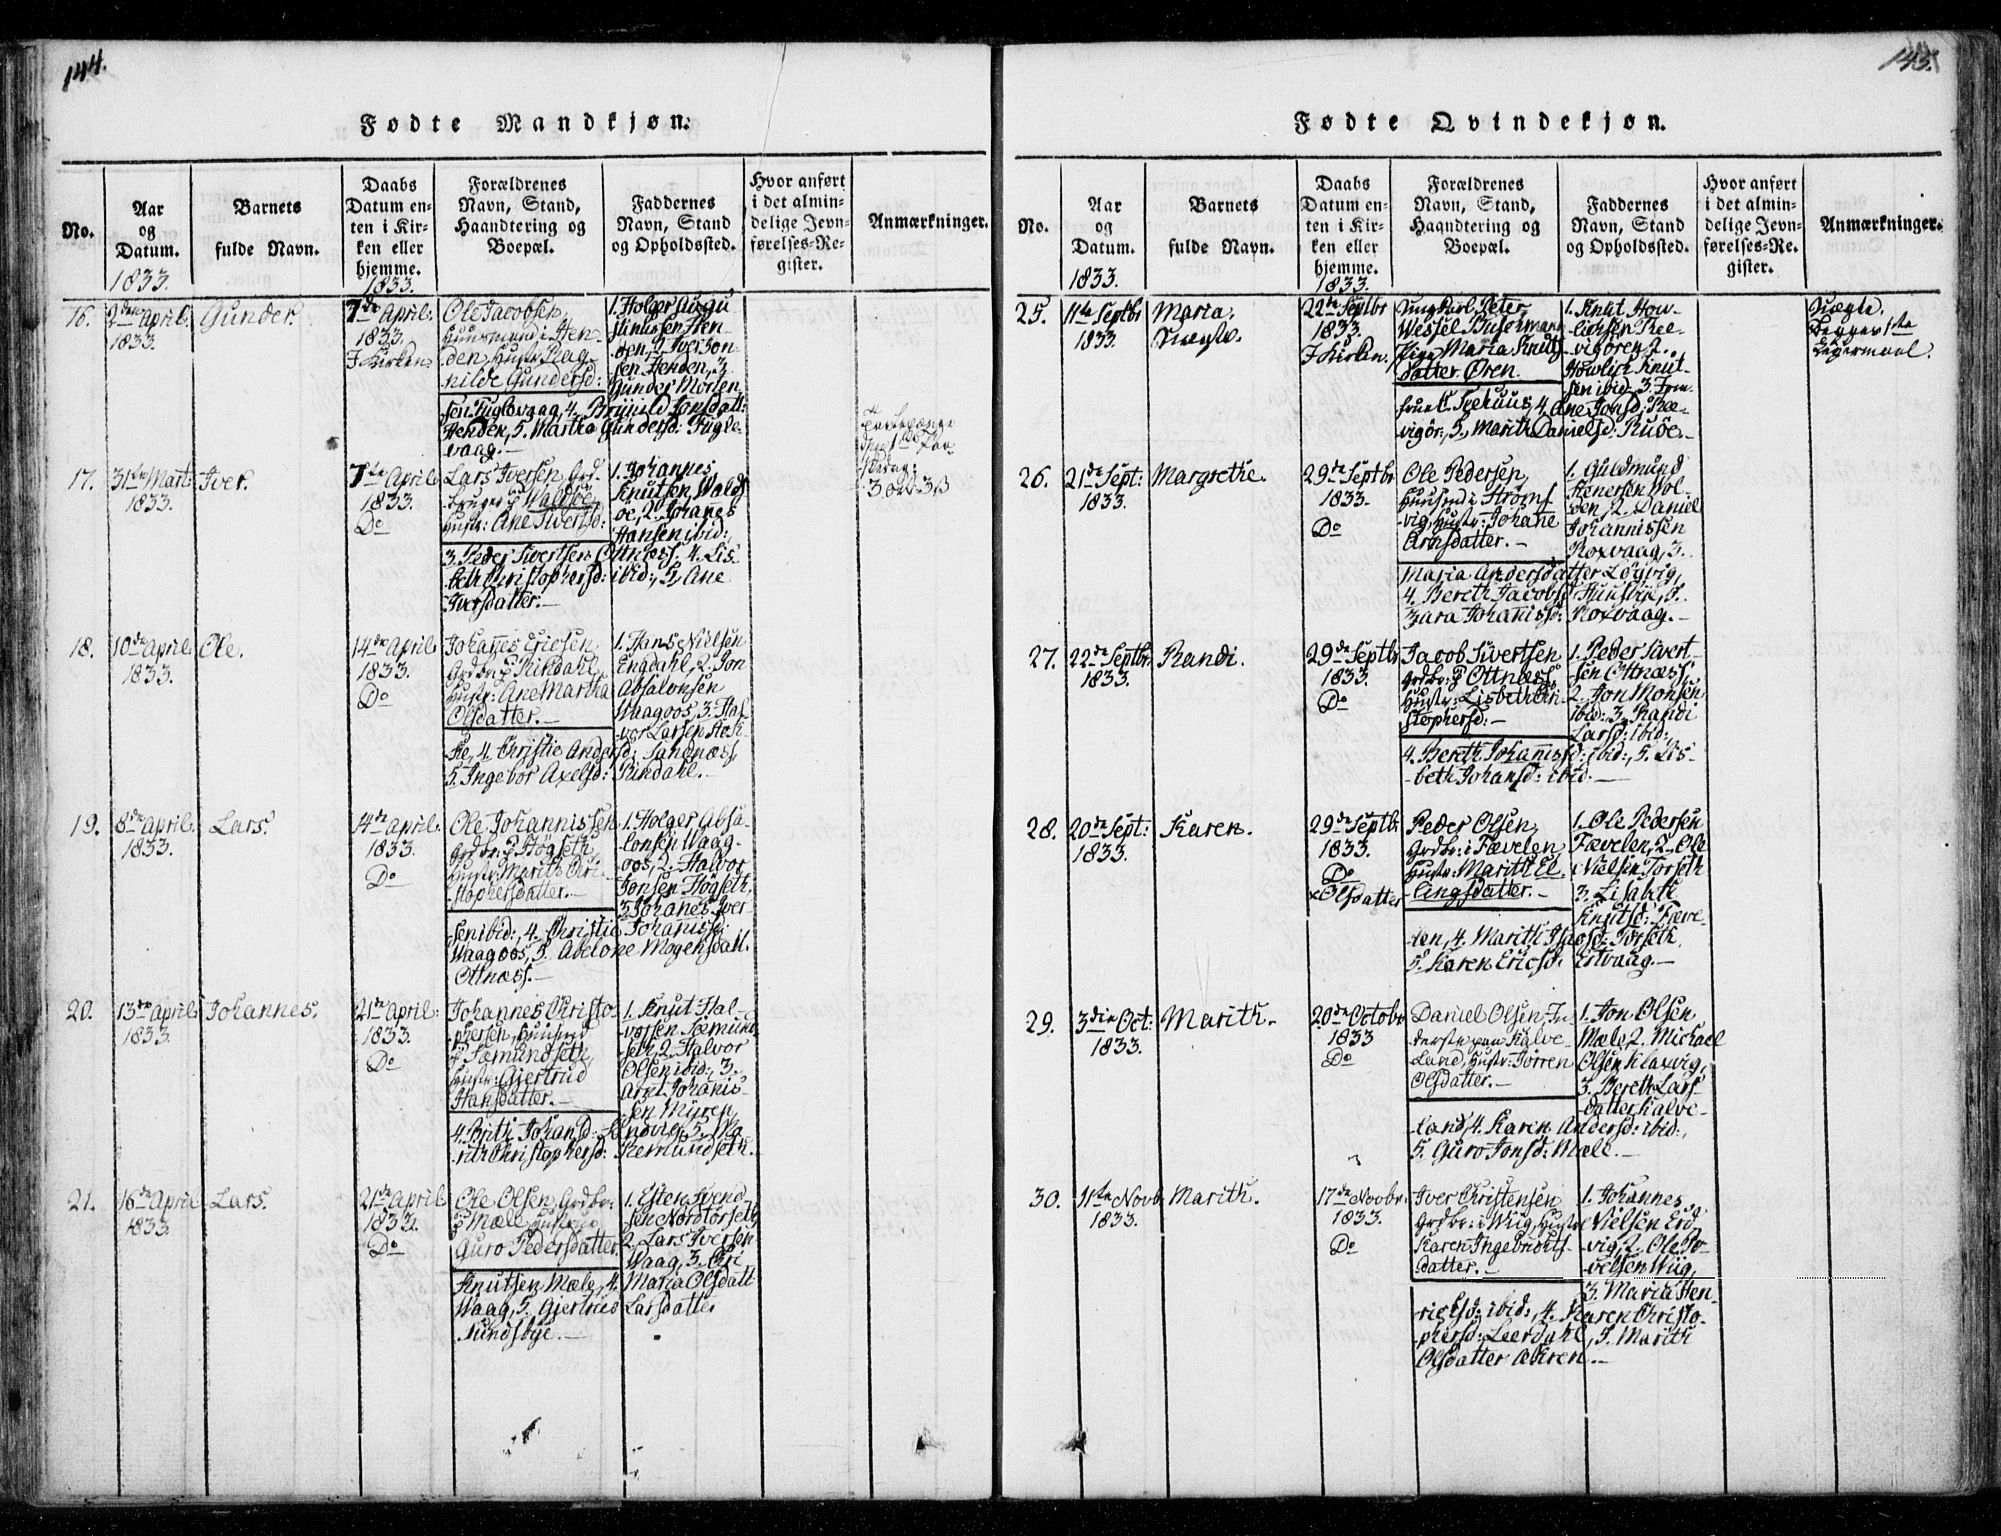 144.
Fødte Mandkjøn.
No.
Aar
og
Datum.
1833.
Barnets
fulde Navn.
Daabs
Datum en-
ten i Kir-
ken eller
hjemme.
1833.
Forældrenes
Navn, Stand,
Haandtering og
Boepæl.
Faddernes
Navn, Stand
og Opholdssted.
Hvor anført
i det almin-
delige Jevn-
førelses-Re-
gister.
Anmærkninger.
16.
2den April.
1833.
Gunder.
7de April.
1833.
I Kirken.
Ole Jacobsen,
Huusmand i Hen-
den, Hustr: Rag-
nilde Gundersd:
1. Holger Augu
stinussen Hen-
den, 2. Iver Jon
sen Henden, 3.
Gunder Morten
sen Fuglevaag, 4. Jonsdatt:
Henden, 5. Martha Gundersd: Fugle-
vaag.-
17.
31te Mart:
1833.
Iver.
7de April.
1833.
Do
Lars Iversen, Grd-
bruger p Waldsøe,
Hustr: Ane Sivertsd:
1. Johannes
Knutsen Walds
øe, 2. Johanes
Hansen ibid:,
3. Peder Sivertsen Ottnæss. 4. Lis
beth Christophersd: ibid:, 5. Ane
Iversdatter.-
18.
10de April.
1833.
Ole.
14de April
1833.
Do
Johanes Ericsen
Grdbr: p Rindahl,
Hustr: Ane Martha
Olsdatter.-
1. Hans Nielsen
Engdahl, 2. Jon
Absalonsen
Waagoos, 3. Hal
vor Larsen Hok
ke, 4. Christie Andersd: Sandnæss,
5. Ingebor Axelsd: Rindahl.-
19.
8de April.
1833.
Lars.
14de April.
1833.
Do
Ole Johannissen
Grdbr: p Høgseth,
Hustr: Marith Chri-
stophersdatter.-
1. Holger Absa-
lonsen Waag-
oos, 2. Halvor
Jonsen Høgseth,
3. Johanes Iver-
sen ibid:, 4. Christie Johanisd:
Waagoos, 5. Abelone Mogensdatt.
Ottnæss.-
20.
13de April.
1833.
Johannes.
21de April.
1833.
Do
Johannes Christo-
phersen, Huusmd
p Sæmundseth,
Hustr: Gjertrud
Hansdatter.-
1. Knut Hal-
vorsen Sæmund
seth, 2. Halvor
Olsen ibid:, 3.
Arnt Johanis-
sen Myren,
4. Brith Johansd: Sandvig, 5. Ma-
rith Christophersd: Remundseth.
21.
16de April
1833.
Lars.
21de April
1833.
Do
Ole Olsen, Grdbr:
p Mæle, Hustrue
Guro Pedersdatter.
1. Esten Svend-
sen Nordtorseth,
2. Lars Iversen
Waag, 3. Ole
Knutsen Mæle, 4. Maria Olsdatt
Waag, 5. Gjertrud Larsdatter
Sundsbye.-
145.
Fødte Qvindekjøn.
No.
Aar
og
Datum.
1833.
Barnets
fulde Navn.
Daabs
Datum en-
ten i Kir-
ken eller
hjemme.
1833.
Forældrenes
Navn, Stand,
Haandtering og
Boepæl.
Faddernes
Navn, Stand
og Opholdssted.
Hvor anført
i det almin-
delige Jevn-
førelses-Re-
gister.
Anmærkninger.
25.
11te Septbr
1833.
Maria,
Uægte.
22de Septbr
1833.
I Kirken.
Ungkarl Peter
Wessel
Pige Maria Knuds-
datter Øren.
1. Knut How-
lichsen Ree-
vigøren, 2.
Howlich Knut-
sen ibid: 3. Jom-
frue Seehuus, 4. Ane Jonsd: Ree-
vigør., 5. Marith Danielsd: Ruøe.-
Uægte.
Begges 1ste
Leiermaal.
26.
21de Sept:
1833.
Margrethe.
29de Septbr
1833.
Do
Ole Pedersen,
Huusmd i Strøms-
vig, Hustr: Johane
Arnsdatter.-
1. Guldmund
Stenersen Wol-
den, 2. Daniel
Johannissen
Roxvaag, 3.
Maria Andersdatter Løgvig,
4. Bereth Jacobsd Huusvig, 5.
Zara Johanisd: Roxvaag.-
27.
22de Septbr.
1833.
Randi.
29de Septbr
1833.
Do
Jacob Sivertsen
Grdbr: p Ottnæss,
Hustr: Lisbeth Chri-
stophersd:-
1. Peder Sivert-
sen Ottnæss,
2. Jon Monsen
ibid: 3. Randi
Larsd: ibid:,
4. Bereth Johanisd: ibid:, 5. Lis-
beth Johansd: ibid:-
28.
20de Sept:
1833.
Karen.
29de Septbr
1833.
Do
x Olsdatter
Peder Olsen,
Grdbr: i Fævelen,
Hustr: Marith El
lingsdatter.-
1. Ole Pedersen
Fævelen, 2. Ole
Nielsen Torseth
3. Lisabeth
Knutsd: Fæve-
len, 4. Marith Torseth,
5. Karen Ericsd: Ertvaag.-
29.
3die Oct:
1833.
Marith.
20de Octobr
1833
Do
Daniel Olsen, In-
derste paa Kalve-
Land, Hustr: Torren
Olsdatter.-
1. Jon Olsen
Mæle, 2. Michael
Olsen Klaxvig,
3. Bereth Lars-
datter Kalve-
land, 4. Karen Andersd: ibid:,
5. Guro Jonsd: Mæle.-
30.
11te Novb.
1833.
Marith.
17de Novbr:
1833.
Do
Iver Christensen
Grdbr: i Wiig, Hustr
Karen Ingebrichts-
datter.-
1. Johannes
Nielsen Erd
vig, 2. Ole Po-
velsen Wiig,
3. Maria Hen-
richsd: ibid:, 4. Karen Christo-
phersd: Leerdahl, 5. Marith
Olsdatter Økren.-